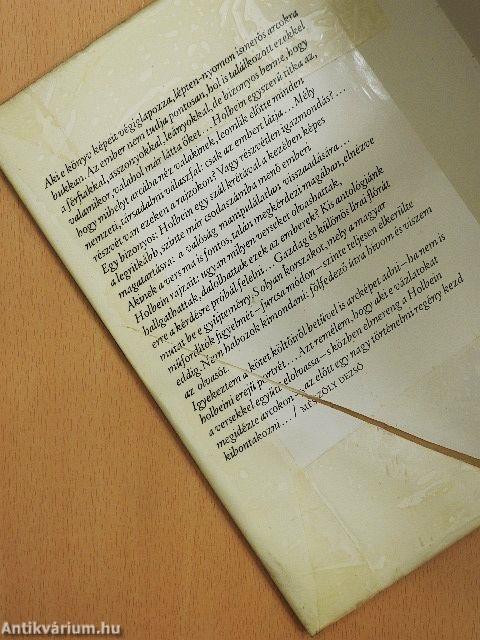 Aki e könyv képeit végiglapozza, lépten-nyomon ismerős arcokra
bukkan. Az ember nem tudja pontosan, hol is találkozott ezekkel
a férfiakkal, asszonyokkal, leányokkal, de bizonyos benne, hogy
valamikor, valahol már látta őket. . . Holbein egyszerű titka az,
hogy mihelyt arcukba néz valakinek, leomlik előtte minden
nemzeti, társadalmi válaszfal: csak az embert látja. . . Mély
részvét van ezeken a rajzokon? Vagy részvétlen igazmondás?. . .
Egy bizonyos: Holbein egy szál krétával a kezében képes
a legritkább, szinte már csodaszámba menő emberi
magatartásra: a valóság manipulálatlan visszaadására. . .
Akinek a vers ma is fontos, talán megkérdezi magában, elnézve
Holbein rajzait: ugyan milyen verseket olvashattak,
hallgathattak, dalolhattak ezek az emberek? Kis antológiánk
erre a kérdésre próbál felelni. . . Gazdag és különös lírai flórát
mutat be e gyűjtemény. S olyan korszakot, mely a magyar
műfordítók figyelmét – furcsa módon – szinte teljesen elkerülte
eddig. Nem habozok kimondani: fölfedező útra hívom és viszem
az olvasót.
Igyekeztem a kötet költőiről betűvel is arcképet adni – ha nem is
holbeini erejű portrét. . . Azt remélem, hogy aki e vázlatokat
a versekkel együtt elolvassa – s közben elmereng a Holbein
megidézte arcokon – az előtt egy nagy történelmi regény kezd
kibontakozni. . . / MÉSZÖLY DEZSŐ
Antikvárium.hu